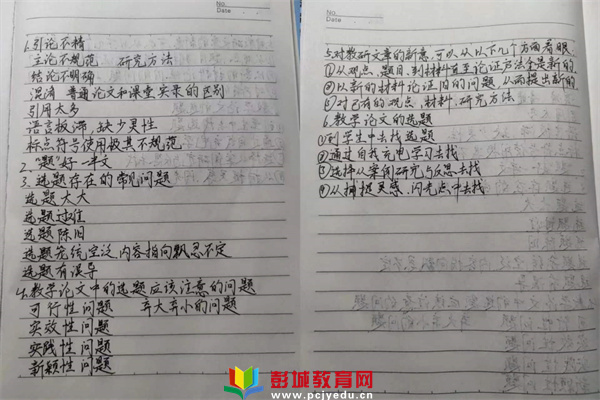 No.
Date
1.引论不精
立论不规范 研究方法
结论不明确
混淆 普通论文和课堂实录的区别
引用太多
语言板滞,缺少灵性
标点符号使用极其不规范
2."题"好一半文
3.选题存在的常见问题
选题太大
选题过难
选题陈旧
选题笼统空泛,内容指向飘忽不定
选题有误导
4.教学论文中的选题应该注意的问题
可行性问题 弃大弃小的问题
实效性问题
实践性问题
新颖性问题
No.
Date
5.对教研文章的新意,可以从以下几个方面着眼
①从观点、题目,到材料直至论证方法全是新的
②以新的材料论证旧的问题,从而提出新的
③对已有的观点、材料、研究方法
6.教学论文的选题
①到学生中去找选题
②通过自我充电学习去找
③选择从案例研究与反思去找
④从捕捉灵感、闪光点中去找
彭城教育网
www.pcjyedu.cn